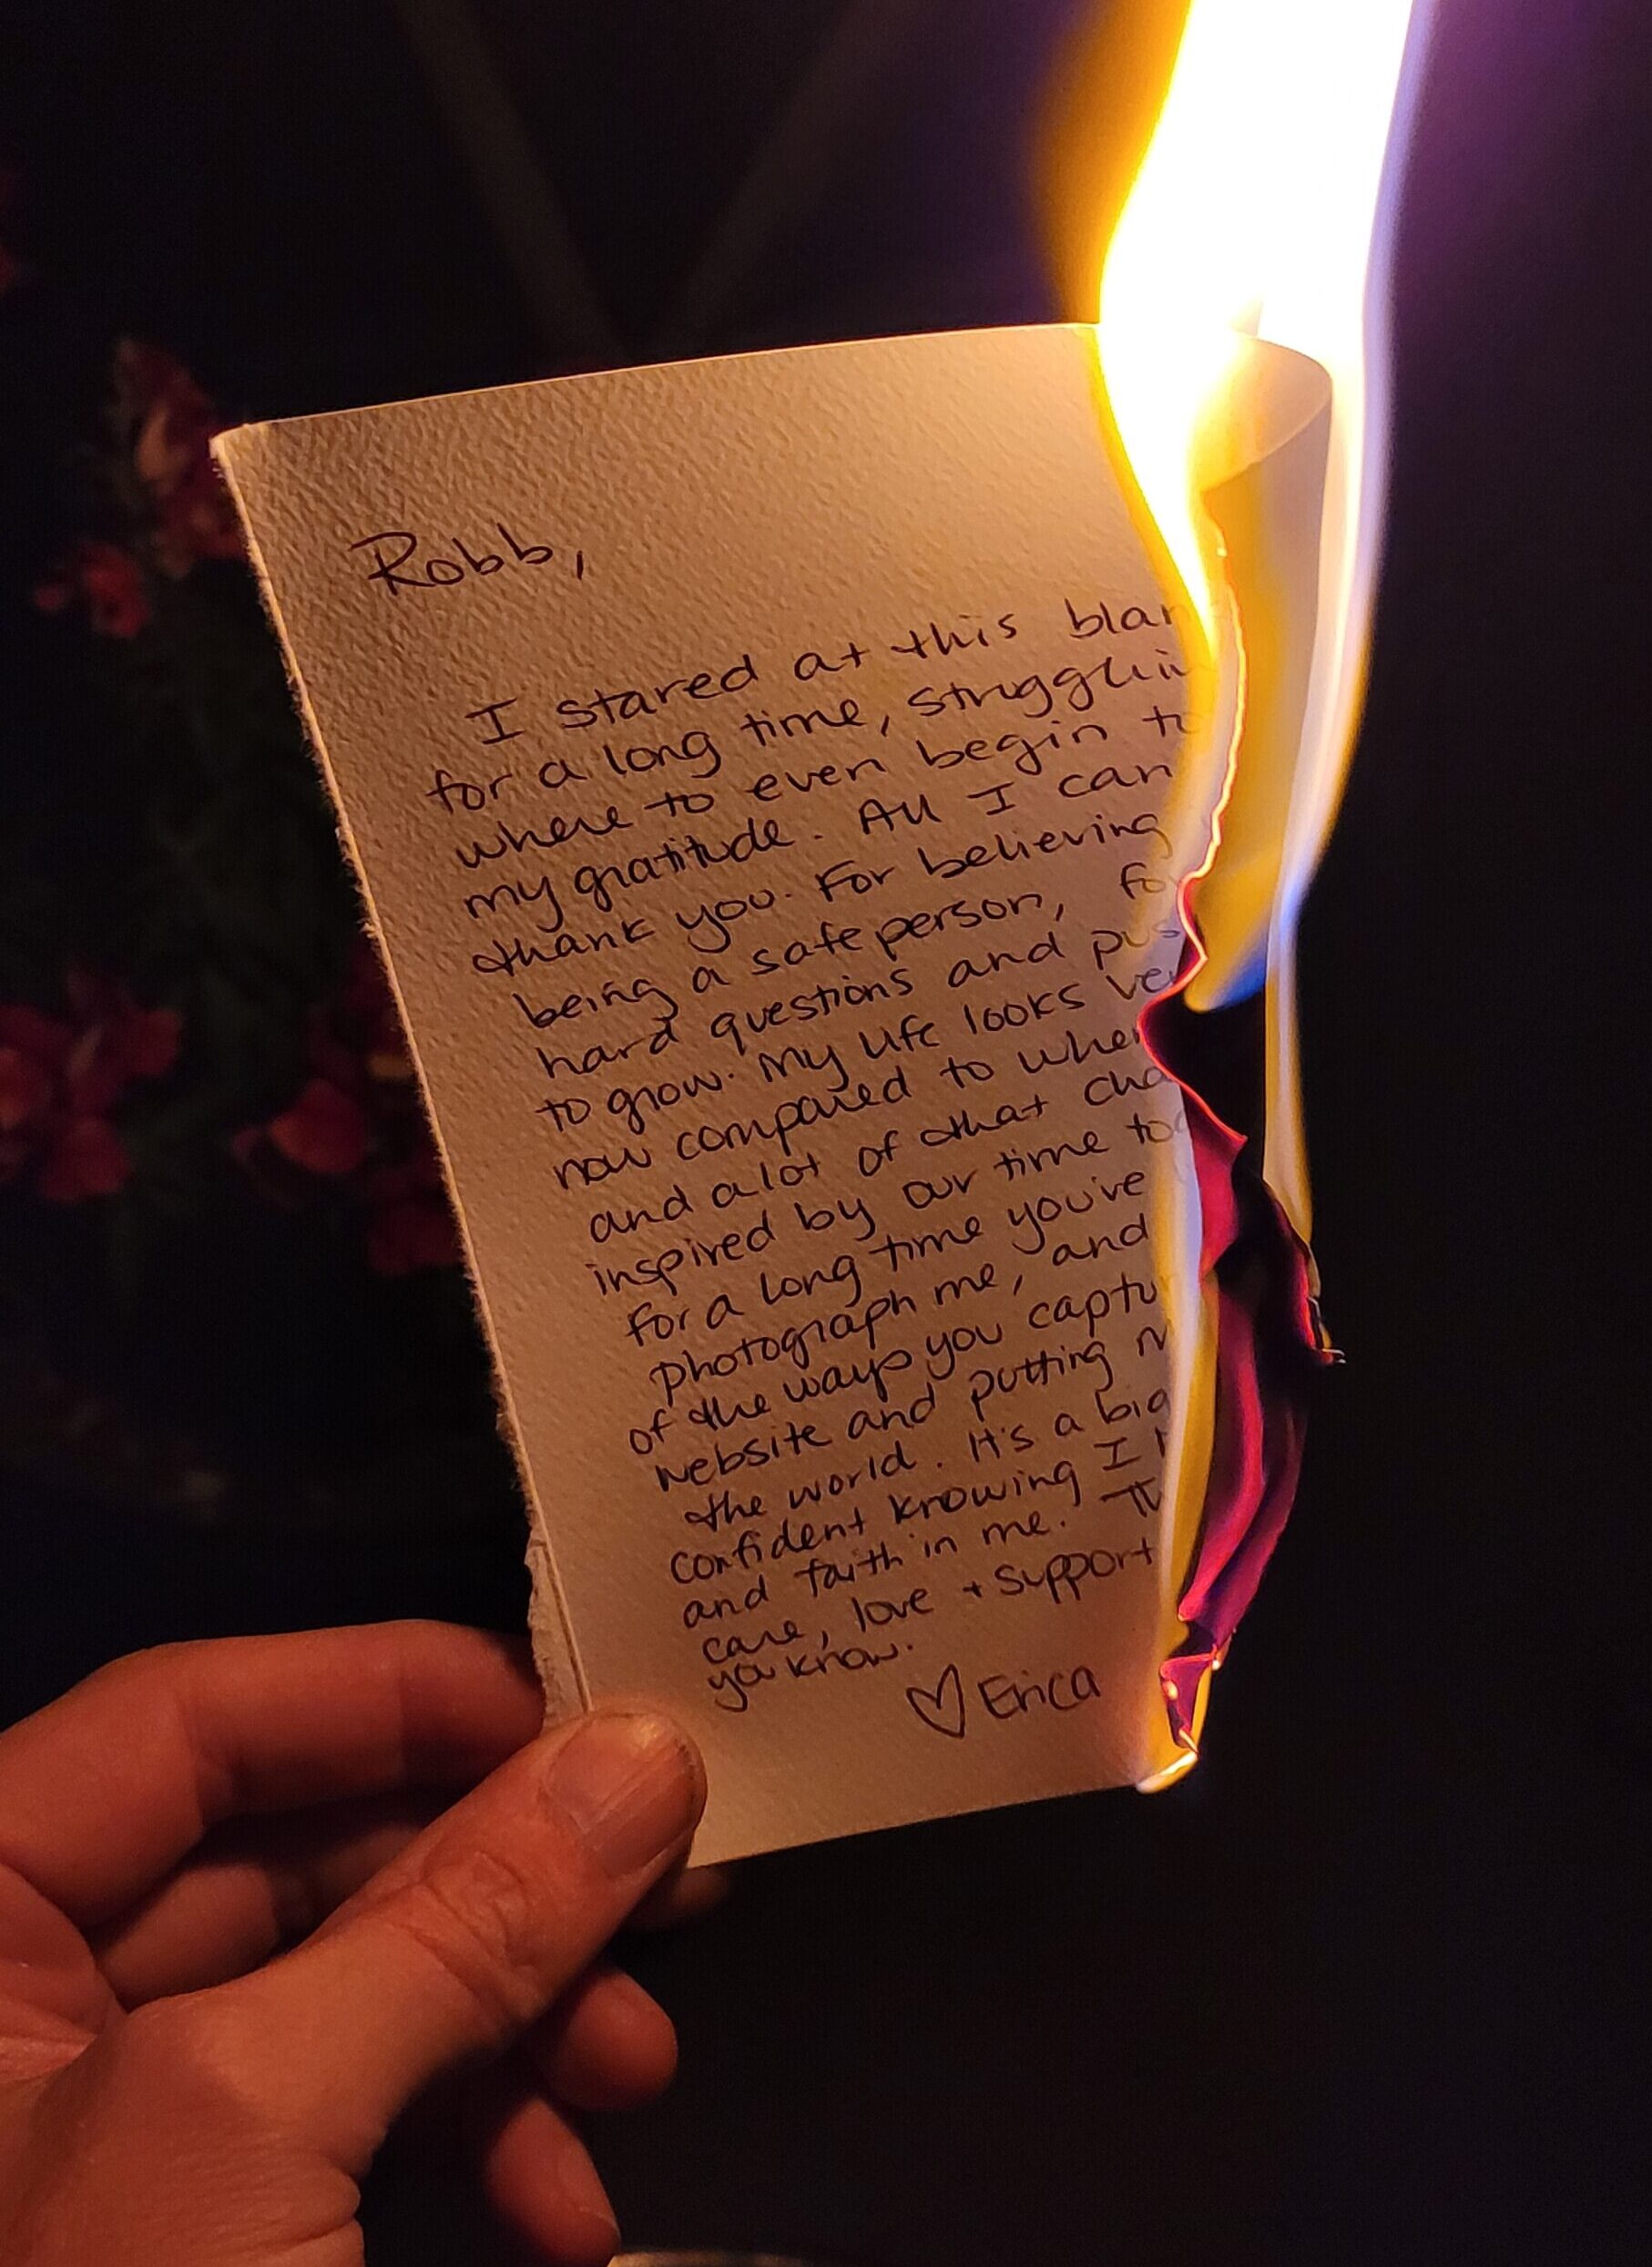 Robb,
I stared at this blan
for a long time, strugglin
where to even begin to
my gratitude. All I can
thank you. For believing
being a safe person, for
hard questions and pus
to grow. My life looks ve
now compared to wher
and a lot of that cha
inspired by our time tog
for a long time you've
photograph me, and
of the ways you captu
website and putting m
the world. It's a big
confident knowing I h
and faith in me. Th
care, love + support
you know.
♡ Erica